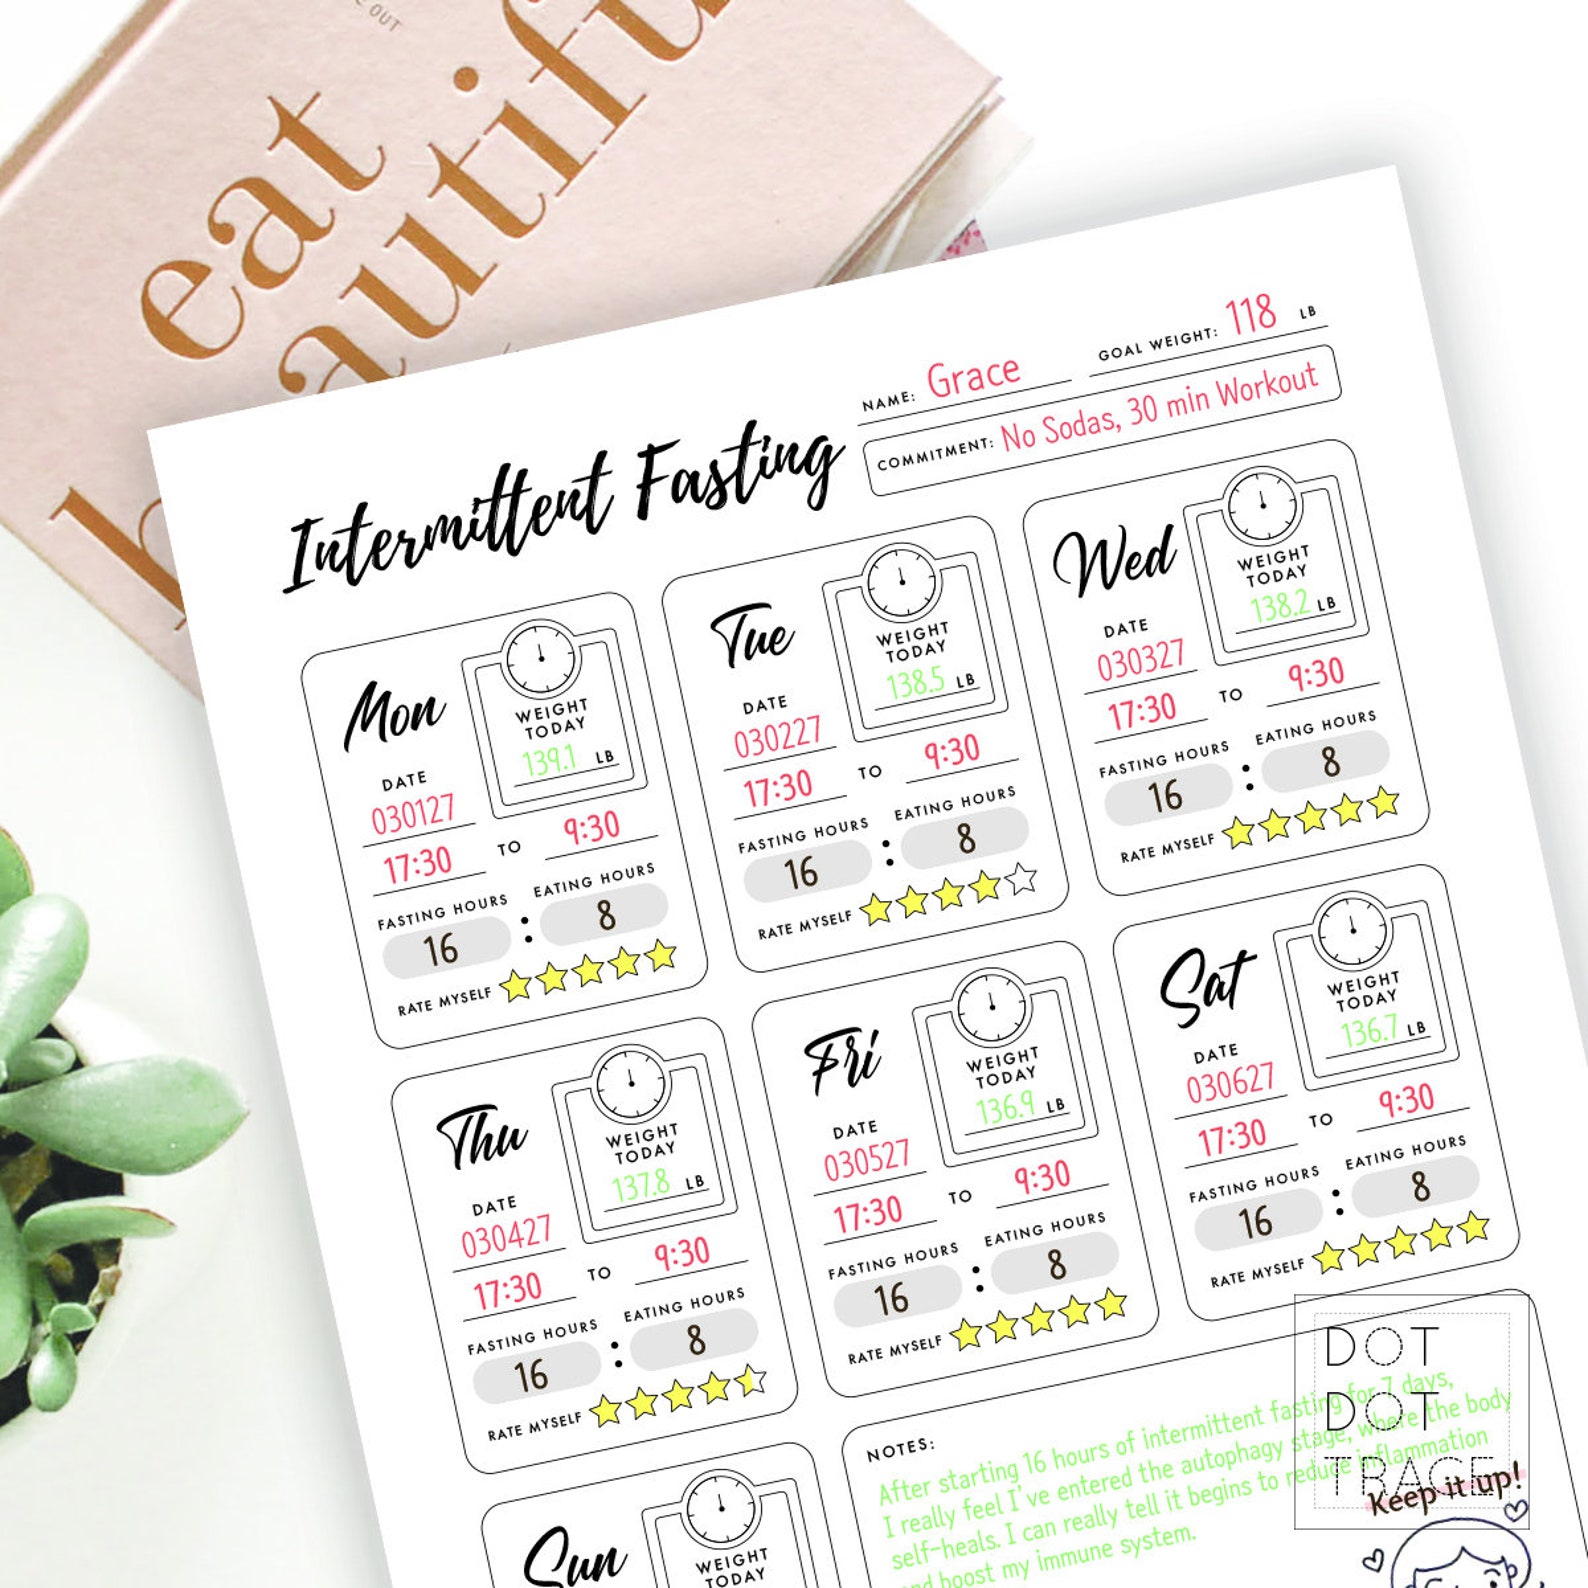 E OUT
eat
autifu
b
NAME: Grace
GOAL WEIGHT: 118 LB
COMMITMENT: No Sodas, 30 min Workout
Intermittent Fasting
Mon
WEIGHT
TODAY
139.1 LB
DATE
030127
17:30 TO 9:30
FASTING HOURS EATING HOURS
16 : 8
RATE MYSELF
Tue
WEIGHT
TODAY
138.5 LB
DATE
030227
17:30 TO 9:30
FASTING HOURS EATING HOURS
16 : 8
RATE MYSELF
Wed
WEIGHT
TODAY
138.2 LB
DATE
030327
17:30 TO 9:30
FASTING HOURS EATING HOURS
16 : 8
RATE MYSELF
Thu
WEIGHT
TODAY
137.8 LB
DATE
030427
17:30 TO 9:30
FASTING HOURS EATING HOURS
16 : 8
RATE MYSELF
Fri
WEIGHT
TODAY
136.9 LB
DATE
030527
17:30 TO 9:30
FASTING HOURS EATING HOURS
16 : 8
RATE MYSELF
Sat
WEIGHT
TODAY
136.7 LB
DATE
030627
17:30 TO 9:30
FASTING HOURS EATING HOURS
16 : 8
RATE MYSELF
Sun
WEIGHT
TODAY
NOTES:
After starting 16 hours of intermittent fasting for 7 days,
I really feel I've entered the autophagy stage, where the body
self-heals. I can really tell it begins to reduce inflammation
and boost my immune system.
Keep it up!
DOT
DOT
TRACE